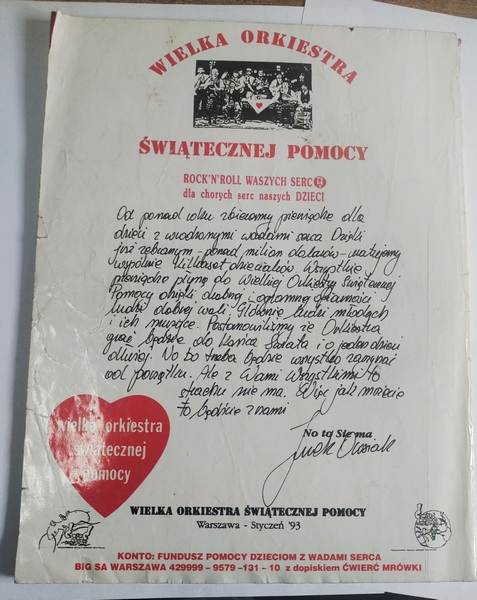 WIELKA ORKIESTRA
ŚWIĄTECZNEJ POMOCY
ROCK'N'ROLL WASZYCH SERC
dla chorych serc naszych DZIECI
Od ponad roku zbieramy pieniądze dla
dzieci z wrodzonymi wadami serca Dzięki
już zebranym - ponad milion dolarów - ratujemy
wspólnie kilkaset dzieciaków Wszystkie
pieniądze płyną do Wielkiej Orkiestry Świątecznej
Pomocy dzięki drobnej i ogromnej ofiarności
ludzi dobrej woli. Głównie ludzi młodych
i ich muzyce. Postanowiliśmy że Orkiestra
grać będzie do końca świata i o jeden dzień
dłużej. No bo trzeba będzie wszystko zaczynać
od początku. Ale z Wami Wszystkimi to
strachu nie ma. Więc jak możecie
to bądźcie z nami
No to Sie ma
Jurek Owsiak
wielka orkiestra
świątecznej
pomocy
WIELKA ORKIESTRA ŚWIĄTECZNEJ POMOCY
Warszawa - Styczeń '93
KONTO: FUNDUSZ POMOCY DZIECIOM Z WADAMI SERCA
BIG SA WARSZAWA 429999 - 9579 -131 - 10 z dopiskiem ĆWIERĆ MRÓWKI